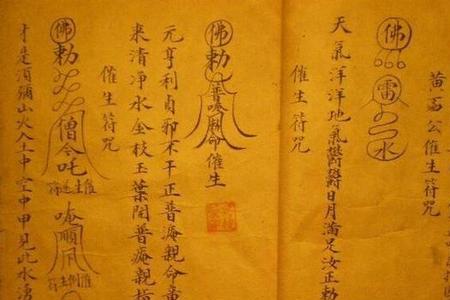 公催生符咒
佛
雷
水
天氣洋洋地氣鬱鬱日月滿足汝正勅
催生符咒
佛
勅
普唵勅命催生
元亨利貞邪不干正普庵親命童
来清净水金枝玉葉閗普庵親指
催生符咒
佛
勅
僧令吒
唵順
才是須彌山火人土中空中甲見此水湧